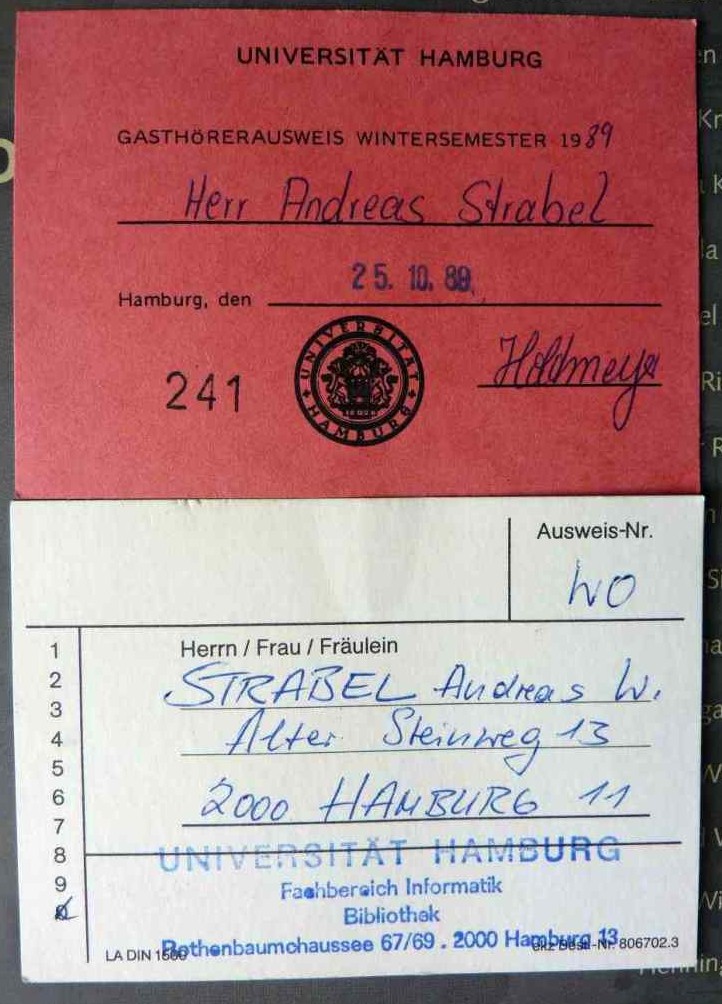 UNIVERSITÄT HAMBURG
GASTHÖRERAUSWEIS WINTERSEMESTER 1989
Herr Andreas Strabel
Hamburg, den 25. 10. 89
241
UNIVERSITÄT HAMBURG
Holdmeyer
Ausweis-Nr.
WO
1
Herrn / Frau / Fräulein
2
STRABEL Andreas W.
3
4
Alter Steinweg 13
5
6
2000 HAMBURG 11
7
8
UNIVERSITÄT HAMBURG
9
Fachbereich Informatik
Bibliothek
Rothenbaumchaussee 67/69 . 2000 Hamburg 13
LA DIN 1500
ekz Best.-Nr. 806702.3